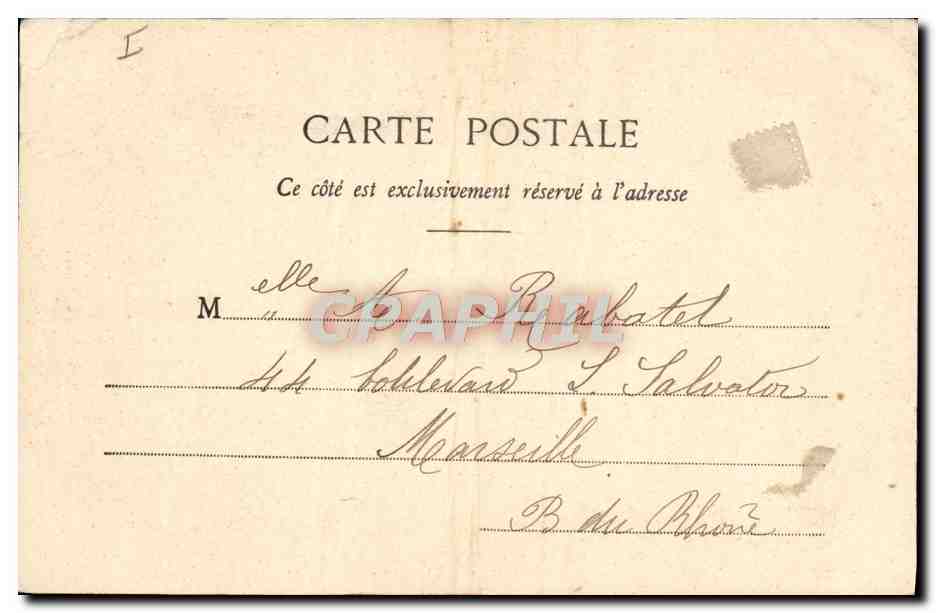 I
CARTE POSTALE
Ce côté est exclusivement réservé à l'adresse
M elle A. Rabatel
44 boulevard S. Salvator
Marseille
B du Rhône
CPAPHIL